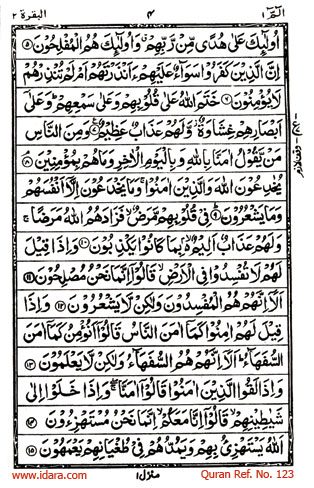 الٓمّٓ ١ ٤ البقرة ٢
اُولٰٓئِكَ عَلٰى هُدًى مِّنْ رَّبِّهِمْ وَاُولٰٓئِكَ هُمُ الْمُفْلِحُوْنَ ۝٥
اِنَّ الَّذِيْنَ كَفَرُوْا سَوَآءٌ عَلَيْهِمْ ءَاَنْذَرْتَهُمْ اَمْ لَمْ تُنْذِرْهُمْ
لَا يُؤْمِنُوْنَ ۝٦ خَتَمَ اللّٰهُ عَلٰى قُلُوْبِهِمْ وَعَلٰى سَمْعِهِمْ ؕ وَعَلٰٓى
اَبْصَارِهِمْ غِشَاوَةٌ ؗ وَّلَهُمْ عَذَابٌ عَظِيْمٌ ۝٧ وَمِنَ النَّاسِ
مَنْ يَّقُوْلُ اٰمَنَّا بِاللّٰهِ وَبِالْيَوْمِ الْاٰخِرِ وَمَا هُمْ بِمُؤْمِنِيْنَ ۝٨
يُخٰدِعُوْنَ اللّٰهَ وَالَّذِيْنَ اٰمَنُوْا ۚ وَمَا يَخْدَعُوْنَ اِلَّآ اَنْفُسَهُمْ
وَمَا يَشْعُرُوْنَ ۝٩ فِيْ قُلُوْبِهِمْ مَّرَضٌ ۙ فَزَادَهُمُ اللّٰهُ مَرَضًا ۚ
وَلَهُمْ عَذَابٌ اَلِيْمٌۢ ۙ بِمَا كَانُوْا يَكْذِبُوْنَ ۝١٠ وَاِذَا قِيْلَ
لَهُمْ لَا تُفْسِدُوْا فِي الْاَرْضِ ۙ قَالُوْٓا اِنَّمَا نَحْنُ مُصْلِحُوْنَ ۝١١
اَلَآ اِنَّهُمْ هُمُ الْمُفْسِدُوْنَ وَلٰكِنْ لَّا يَشْعُرُوْنَ ۝١٢ وَاِذَا
قِيْلَ لَهُمْ اٰمِنُوْا كَمَآ اٰمَنَ النَّاسُ قَالُوْٓا اَنُؤْمِنُ كَمَآ اٰمَنَ
السُّفَهَآءُ ؕ اَلَآ اِنَّهُمْ هُمُ السُّفَهَآءُ وَلٰكِنْ لَّا يَعْلَمُوْنَ ۝١٣
وَاِذَا لَقُوا الَّذِيْنَ اٰمَنُوْا قَالُوْٓا اٰمَنَّا ۚ وَاِذَا خَلَوْا اِلٰى
شَيٰطِيْنِهِمْ ۙ قَالُوْٓا اِنَّا مَعَكُمْ ۙ اِنَّمَا نَحْنُ مُسْتَهْزِءُوْنَ ۝١٤
اَللّٰهُ يَسْتَهْزِئُ بِهِمْ وَيَمُدُّهُمْ فِيْ طُغْيَانِهِمْ يَعْمَهُوْنَ ۝١٥
وقف لازم
منزل ١
www.idara.com Quran Ref. No. 123